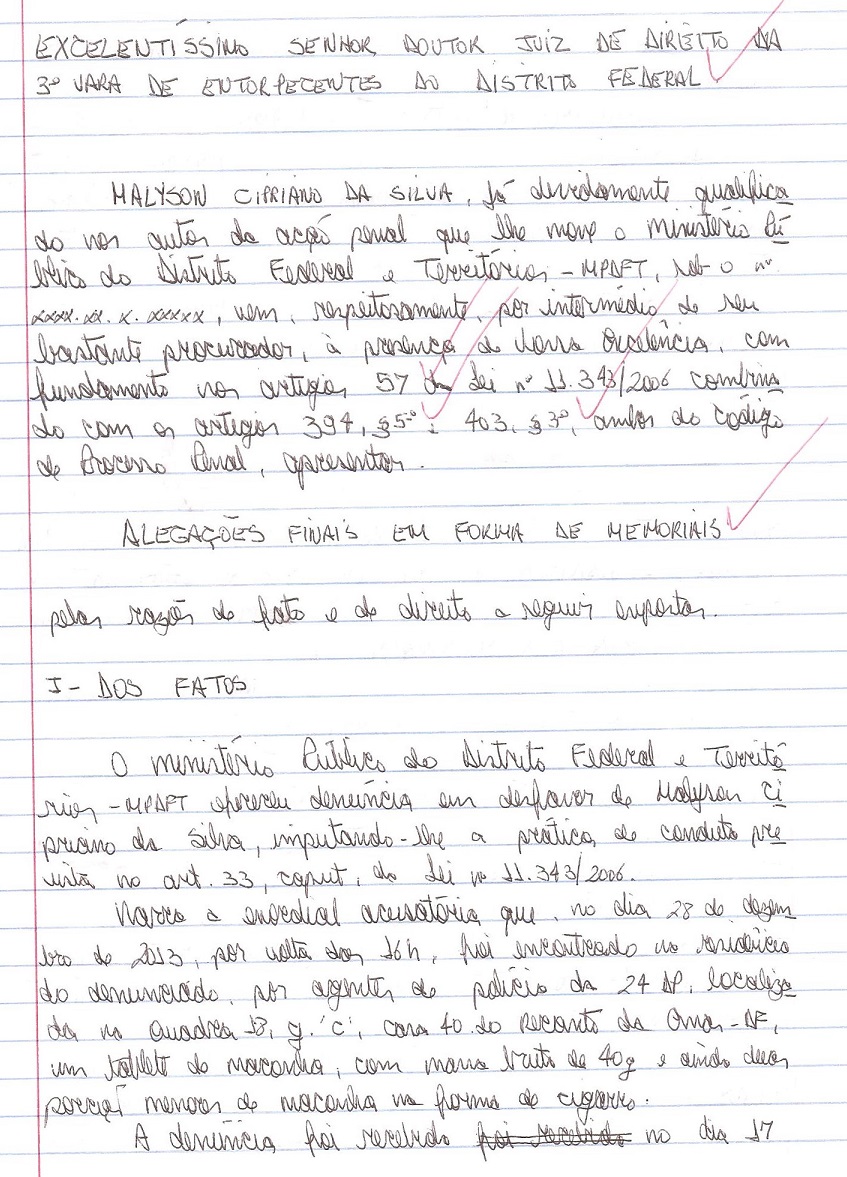 EXCELENTÍSSIMO SENHOR DOUTOR JUIZ DE DIREITO DA
3º VARA DE ENTORPECENTES DO DISTRITO FEDERAL
MALYSON CIPRIANO DA SILVA, já devidamente qualifica
do nos autos da ação penal que lhe move o ministério Pú
blico do Distrito Federal e Territórios - MPDFT, sob o nº
xxxx.xx.x.xxxxx, vem, respeitosamente, por intermédio de seu
bastante procurador, à presença de Vossa Excelência, com
fundamento nos artigos 57 da Lei nº 11.343/2006 combina
do com os artigos 394, §5º e 403, §3º, ambos do Código
de Processo Penal, apresentar.
ALEGAÇÕES FINAIS EM FORMA DE MEMORIAIS
pelas razões de fato e de direito a seguir expostas.
I - DOS FATOS
O ministério Público do Distrito Federal e Territó
rios - MPDFT ofereceu denúncia em desfavor de Malyson Ci
priano da Silva, imputando-lhe a prática de conduta pre
vista no art. 33, caput, da Lei nº 11.343/2006.
Narra a exordial acusatória que, no dia 28 de dezem
bro de 2013, por volta das 16h, foi encontrado na residência
do denunciado, por agentes de polícia da 24 DP, localiza
da na Quadra 18, g. 'c', casa 40 do Recanto da Emas - DF,
um tablete de maconha, com massa bruta de 40g e ainda duas
porções menores de maconha na forma de cigarro.
A denúncia foi recebida foi recebida no dia 17